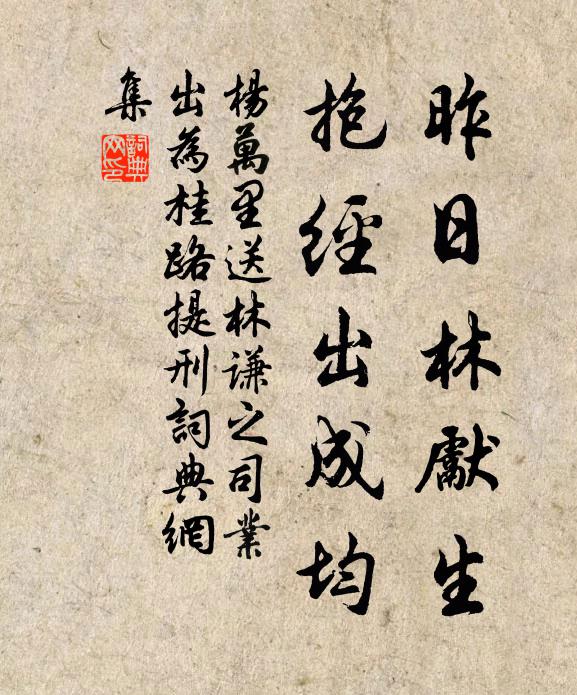 昨日林獻生
抱經出成均
楊萬里送林謙之司業
出為桂路提刑詞典網
集
詞典
网印